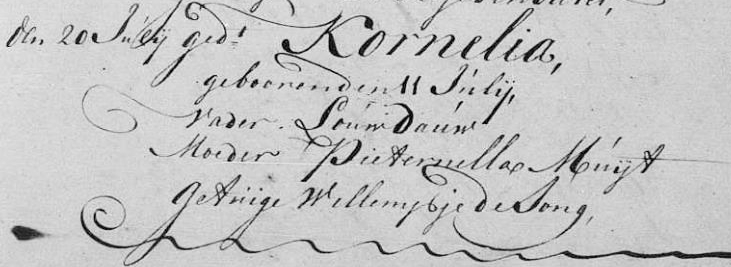 den 20 Julij ged.t Kornelia,
gebooren den 11 Julij,
Vader. Louw Dauw
Moeder Pieternella Muijt
getuige Willemijntje de Jong,